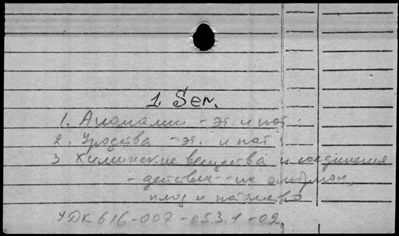 1. Ser.
1. Аномалии - эт. и пат.
2. Уродства - эт. и пат.
3 Химические вещества и соединения
- действ. - на эмбрион,
плод и потомство
УДК 616-007-053.1-02